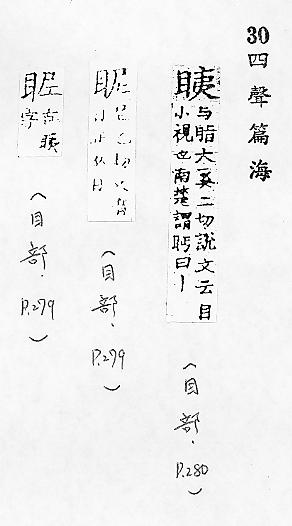 30 四聲篇海
眱
与脂大奚二切說文云目
小視也南楚謂眄曰丨
(目部.P.280)
(目部.P.279)
古眱
字
(目部.P.279)